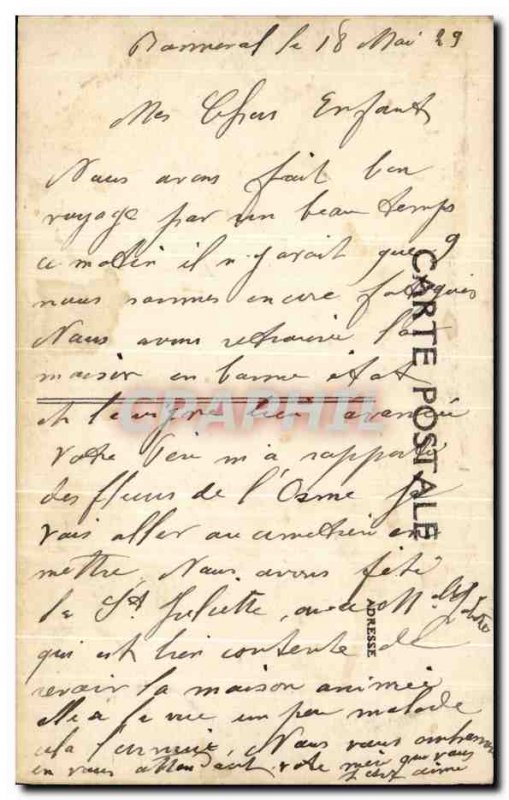 le 18 Mai 29
Mes Chers Enfant
Nous avons fait bon
voyage par un beau temps
ce matin il n y avait que 9
nous sommes encore fatigués
Nous avons retrouvé la
maison en bonne état
et bien avancé
votre Père m a rapporté
des fleurs de l'Orme je
vais aller au cimetière en
mettre Nous avons fété
la St Juliette, avec M.
qui est bien contente de
revoir la maison animée
Elle a été un peu malade
Nous vous embrassons
en vous attendant votre mère que vous
CARTE POSTALE
ADRESSE
CPAPHIL